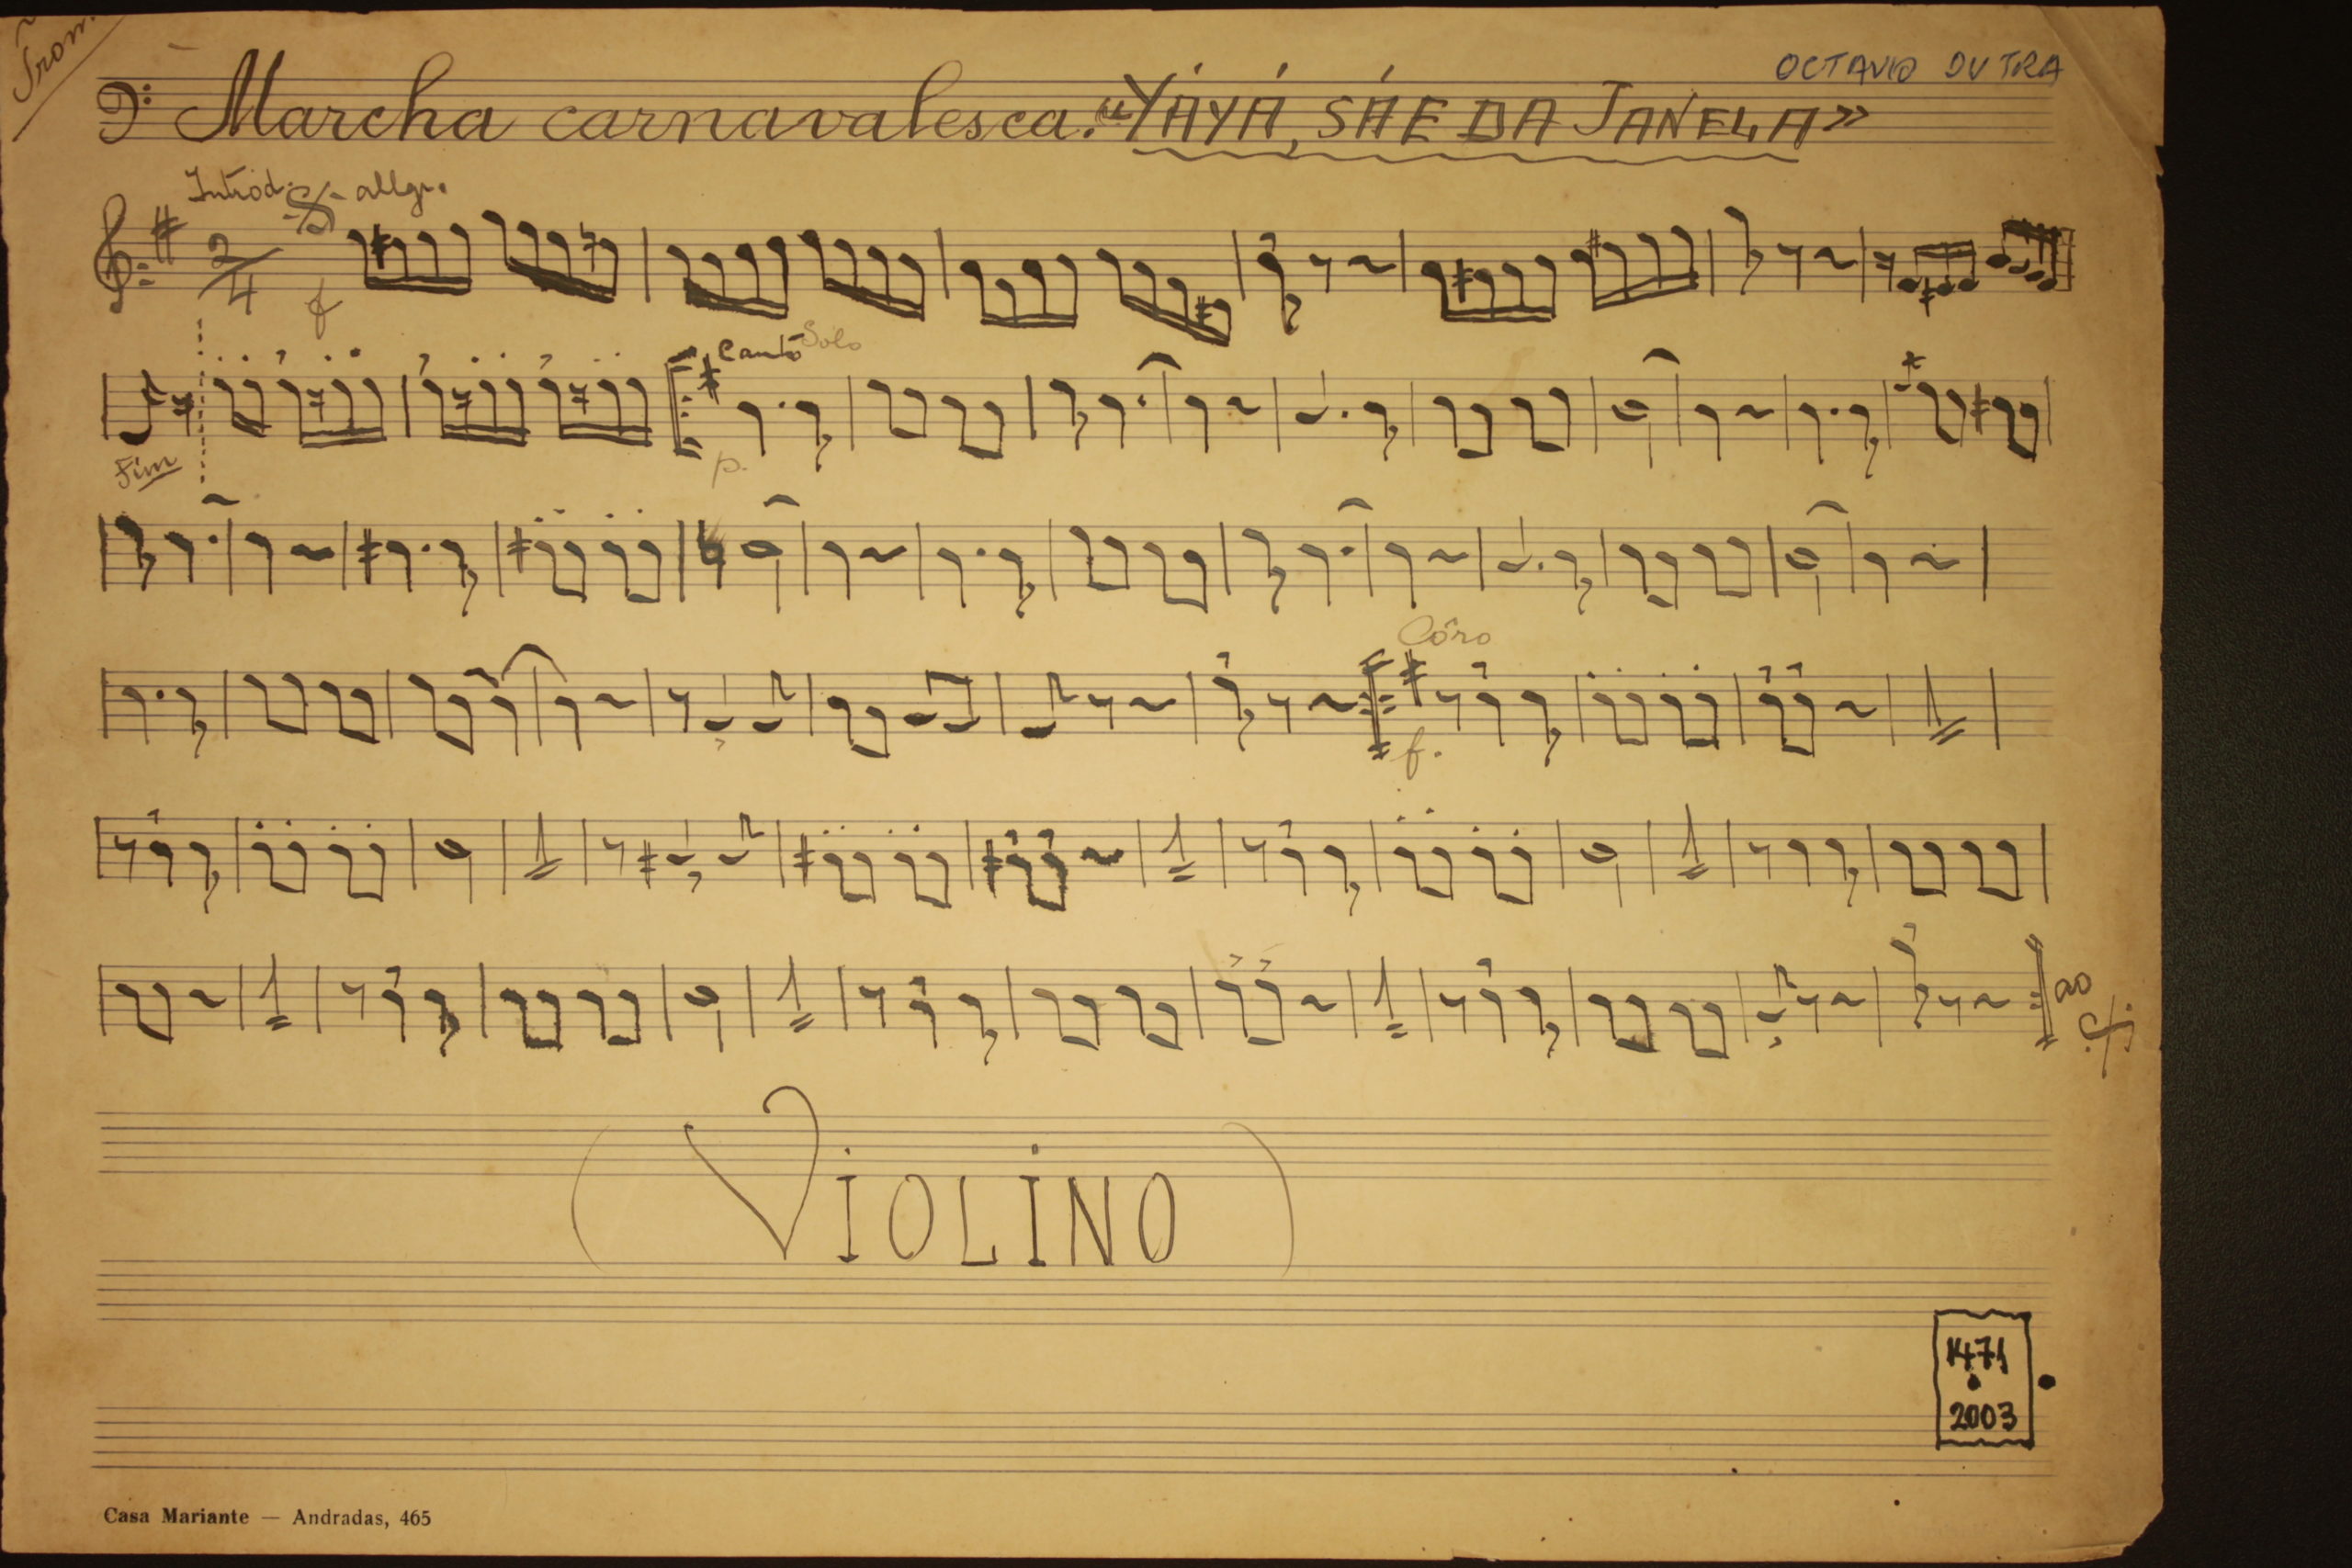 Trom.
OCTAVIO DUTRA
Marcha carnavalesca. "YÁYÁ, SÁE DA JANELA»
Introd. allgr.
2/4
f
Canto Solo
Fim
p.
Côro
f.
ao
(VIOLINO)
1471
2003
Casa Mariante — Andradas, 465